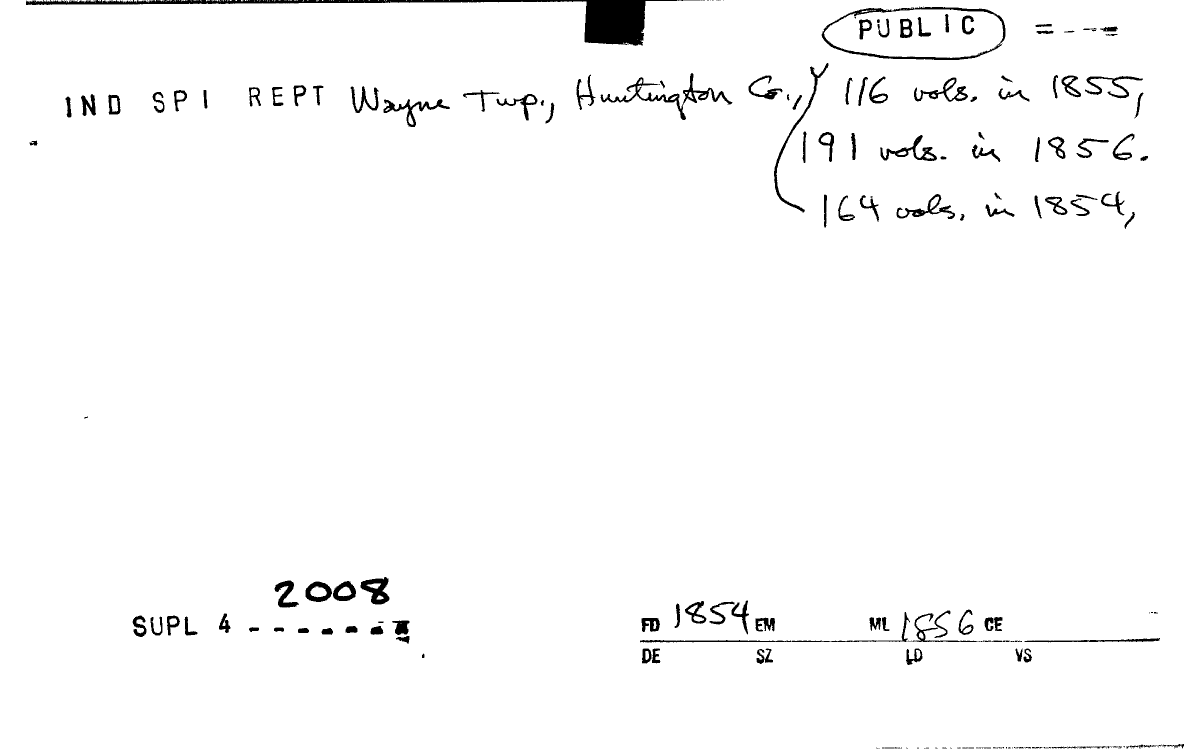 PUBLIC
IND SPI REPT Wayne Twp., Huntington Co., 116 vols. in 1855,
191 vols. in 1856.
164 vols. in 1854,
2008
SUPL 4
FD 1854 EM ML 1856 CE
DE SZ LD VS